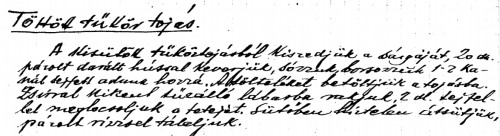 Töltött tükör tojás.
A kisütött tükörtojásból kiszedjük a sárgáját, 20 dk.
párolt darált hússal keverjük, sózzuk, borsozzuk 1-2 ka-
nál tejfelt adunk hozzá. A tölteléket betöltjük a tojásba.
Zsírral kikent tűzálló lábasba rakjuk, 2 dl. tejfel-
lel meglocsoljuk a tetejét. Sütőben hirtelen átsütjük,
párolt rizzsel tálaljuk.